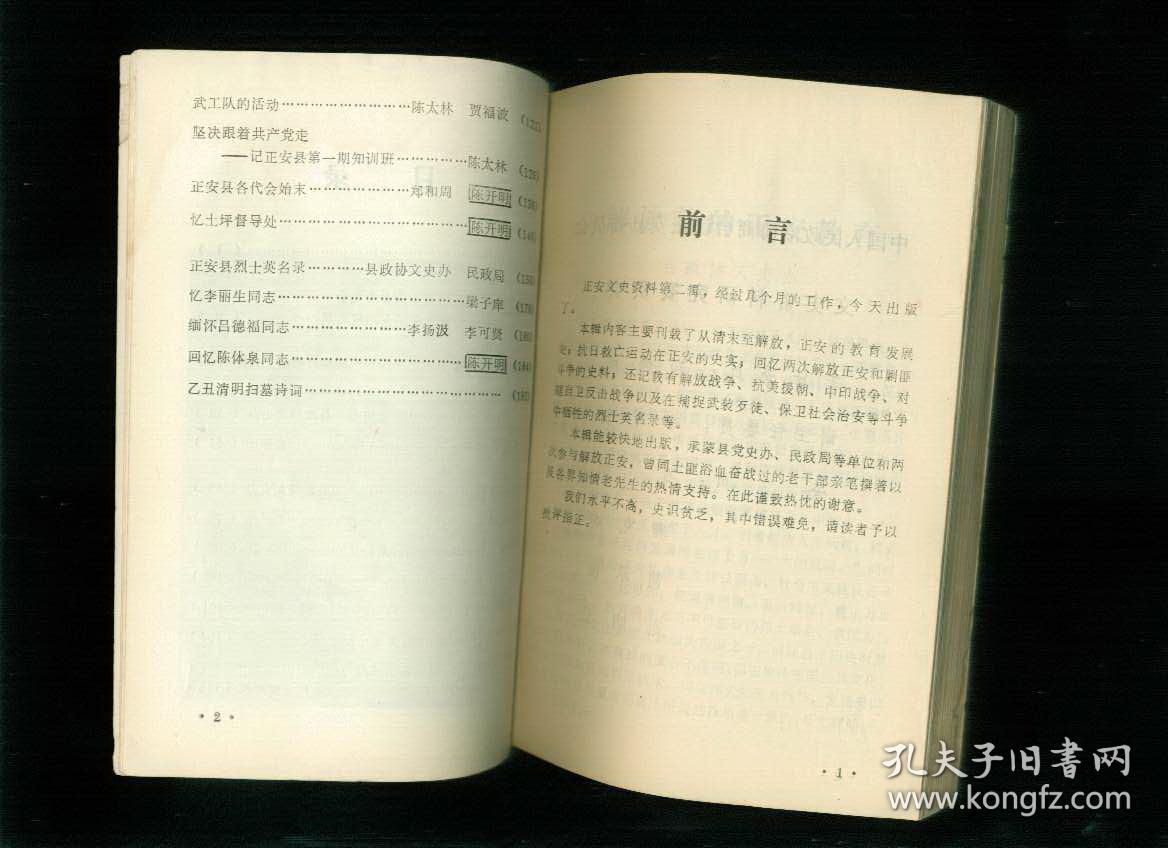 武工队的活动………………………陈太林 贾福波 (122)
坚决跟着共产党走
——记正安县第一期知训班……………陈太林 (126)
正安县各代会始末…………………郑和周 陈开明
忆土坪督导处………………………………陈开明
正安县烈士英名录…………县政协文史办 民政局
忆李丽生同志………………………………梁子库
缅怀吕德福同志……………………李扬汲 李可贤
回忆陈体泉同志……………………………陈开明
乙丑清明扫墓诗词……………………………………
• 2 •
前言
正安文史资料第二辑，经过几个月的工作，今天出版
了。
本辑内容主要刊载了从清末至解放，正安的教育发展
史；抗日救亡运动在正安的史实；回忆两次解放正安和剿匪
斗争的史料；还记载有解放战争、抗美援朝、中印战争、对
越自卫反击战争以及在捕捉武装歹徒、保卫社会治安等斗争
中牺牲的烈士英名录等。
本辑能较快地出版，承蒙县党史办、民政局等单位和两
次参与解放正安，曾同土匪浴血奋战过的老干部亲笔撰著以
及各界知情老先生的热情支持。在此谨致热忱的谢意。
我们水平不高，史识贫乏，其中错误难免，请读者予以
批评指正。
• 1 •
孔夫子旧书网
www.kongfz.com